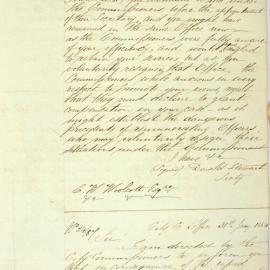 the Commissioners before the appointment
of their Secretary, and you might have
remained in the same Office now
as the Commissioners were fully aware
of your efficiency and would
to retain your services, but as you
voluntarily resigned that Office, the
Commissioners while anxious in every
respect to promote your views, regret
that they must decline to grant
compensation in your case as it
might establish the dangerous
precedent of remunerating Officers
who may voluntarily resign their
situations under the Commissioners
I have &c
Signed Donald
Secty
C. W. Woolcott Esqre
&c
City C. Office
Sir
I am directed by the
City Commissioners to inform you
that in consequence of the